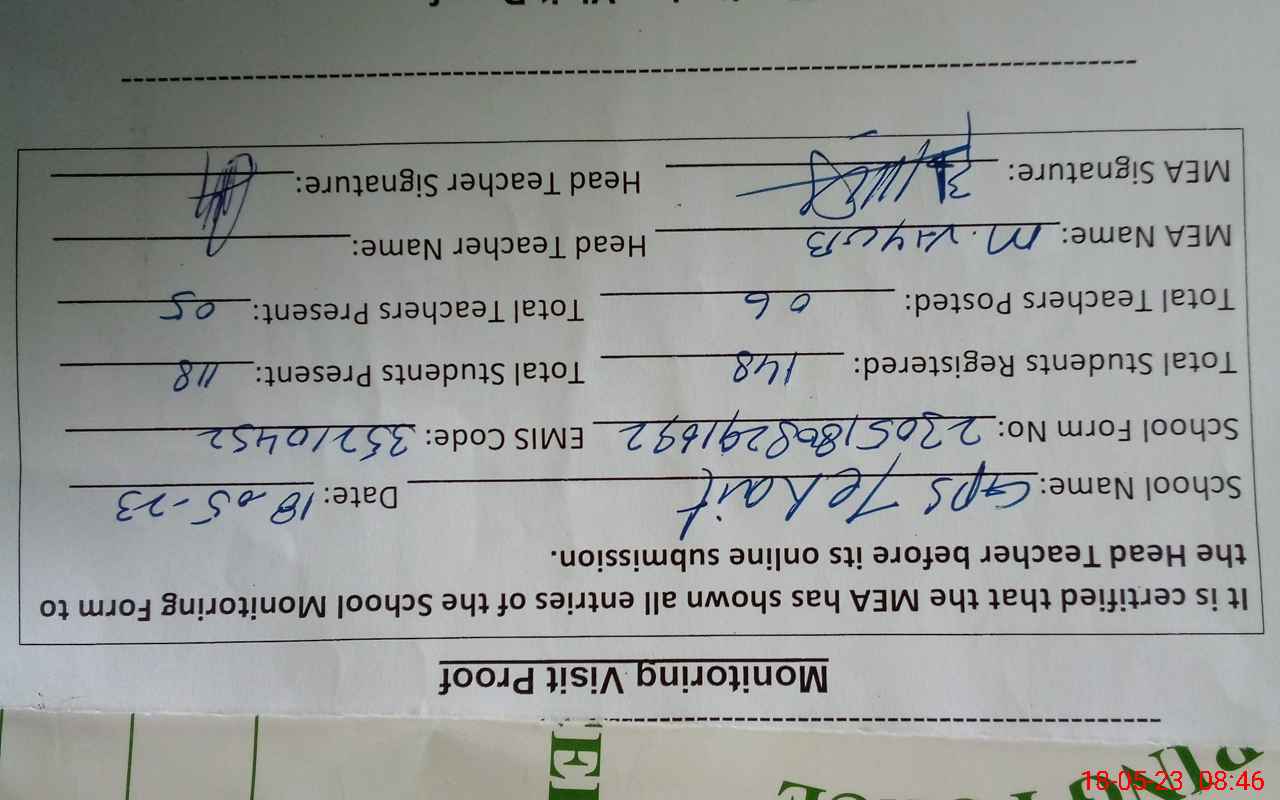 Monitoring Visit Proof
It is certified that the MEA has shown all entries of the School Monitoring Form to
the Head Teacher before its online submission.
School Name: GPS Tehait Date: 18-05-23
School Form No: EMIS Code: 35210452
Total Students Registered: 148 Total Students Present: 118
Total Teachers Posted: 06 Total Teachers Present: 05
MEA Name: M. Head Teacher Name:
MEA Signature: Head Teacher Signature:
18-05-23 08:46